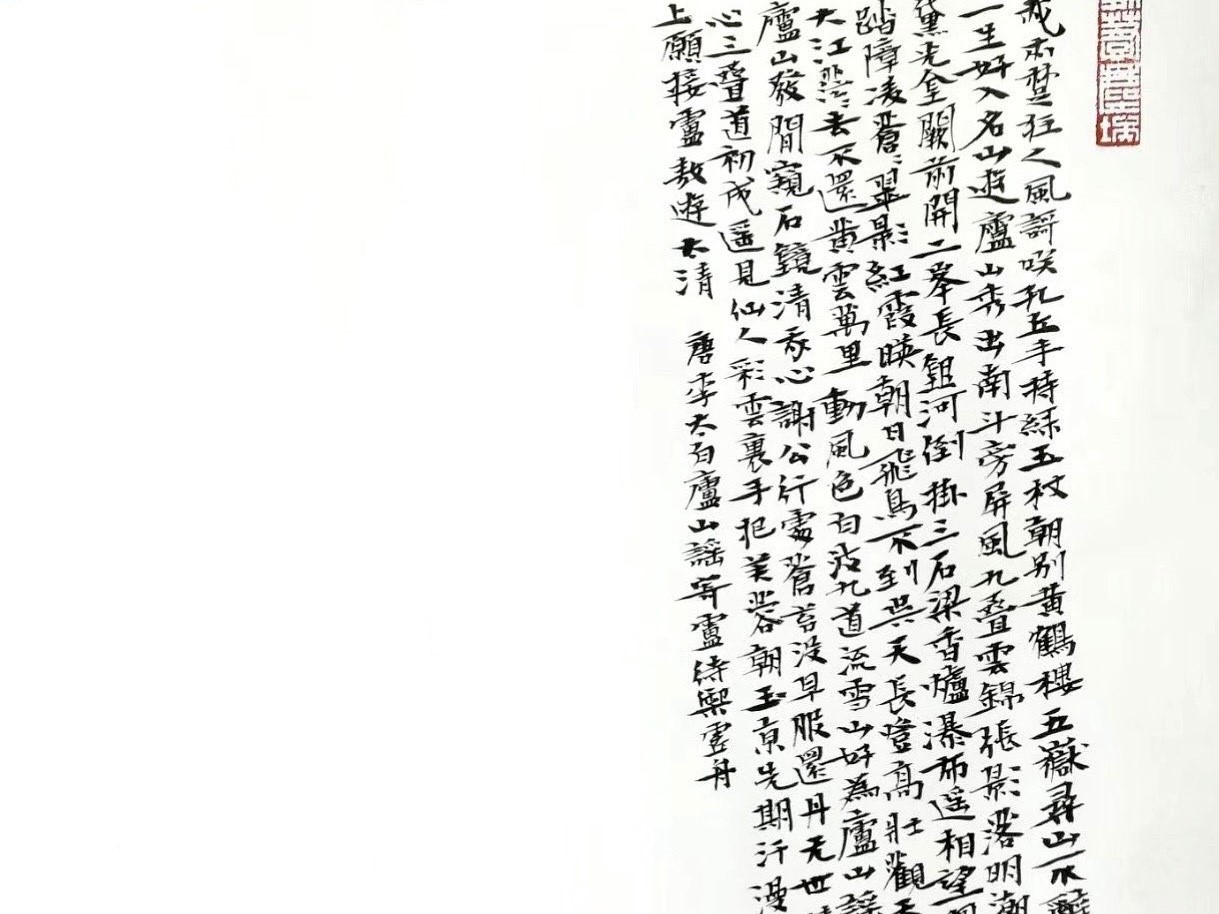 我本楚狂人風謌咲孔丘手持綠玉杖朝別黃鶴樓五嶽尋山不辭
一生好入名山遊廬山秀出南斗旁屏風九疊雲錦張影落明湖
黛光金闕前開二峯長銀河倒掛三石梁香爐瀑布遥相望
踏障凌蒼〻翠影紅霞暎朝日飛鳥不到吳天長登高壯觀天
大江茫〻去不還黃雲萬里動風色白波九道流雪山好為廬山謠
廬山發閒窺石鏡清我心謝公行處蒼苔没早服還丹无世
心三疊道初成遥見仙人彩雲裏手把芙蓉朝玉京先期汗漫
上願接盧敖遊太清 唐李太白廬山謠寄盧侍御虛舟